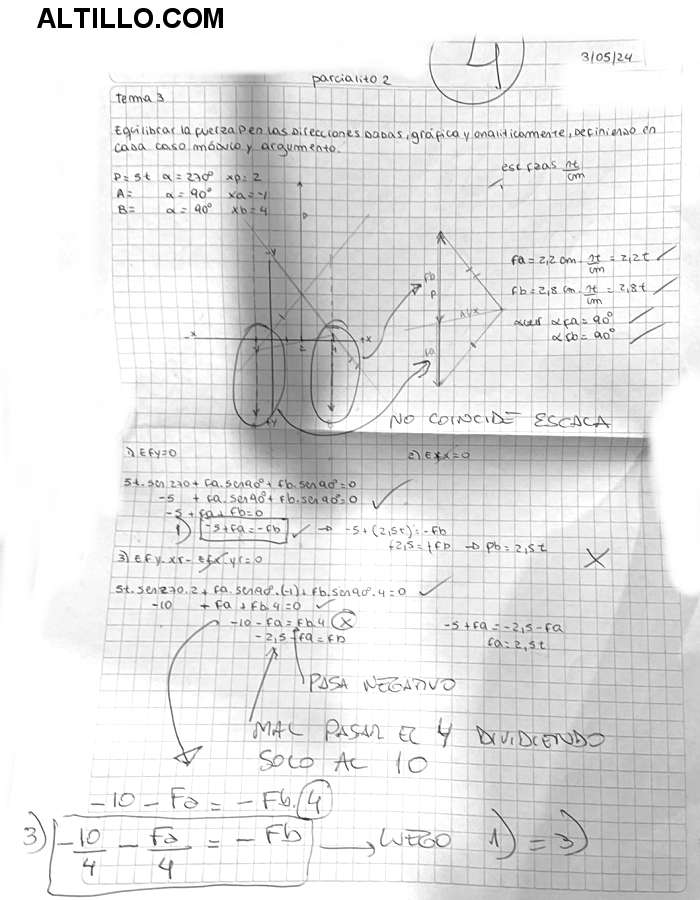 ALTILLO.COM
4
3/05/24
parcialito 2
tema 3
Equilibrar la fuerza P en las direcciones dadas, gráfica y analíticamente, definiendo en
cada caso módulo y argumento.
P= 5t α= 270° xp= 2
A= α= 90° xa= -1
B= α= 90° xb= 4
esc fzas 1t/cm
P
-x
+x
2
4
+y
-y
fb
P
fa
AUX
fa = 2,2 cm . 1t/cm = 2,2t
fb = 2,8 cm . 1t/cm = 2,8t
α fa = 90°
α fb = 90°
NO COINCIDE ESCALA
1) Σfy=0
2) Σfx=0
5t.sen270 + fa.sen90° + fb.sen90° = 0
-5 + fa.sen90° + fb.sen90° = 0
-5 + fa + fb = 0
1) -5 + fa = -fb ⇒ -5 + (2,5t) = -fb
+2,5 = +fb ⇒ fb = 2,5t
X
3) Σfy.xi - Σfx.yi = 0
5t.sen270.2 + fa.sen90°.(-1) + fb.sen90°.4 = 0
-10 + fa + fb.4 = 0
-10 - fa = fb.4 X
-2,5 - fa = fb
-5 + fa = -2,5 - fa
fa = 2,5t
PASA NEGATIVO
MAL PASAR EL 4 DIVIDIENDO
SOLO AL 10
-10 - Fa = -Fb.4
3) -10/4 - Fa/4 = -Fb → LUEGO 1) = 3)